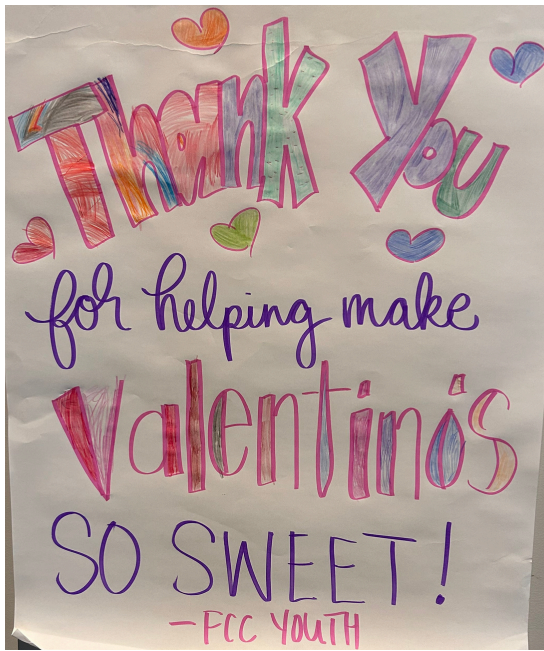 Thank You
for helping make
Valentino's
SO SWEET!
-FCC YOUTH